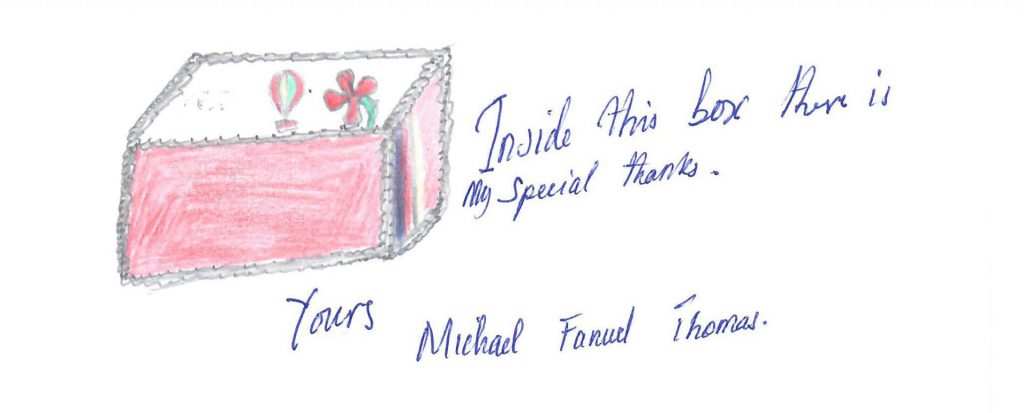 Inside this box there is
my special thanks.
Yours
Michael Fanuel Thomas.